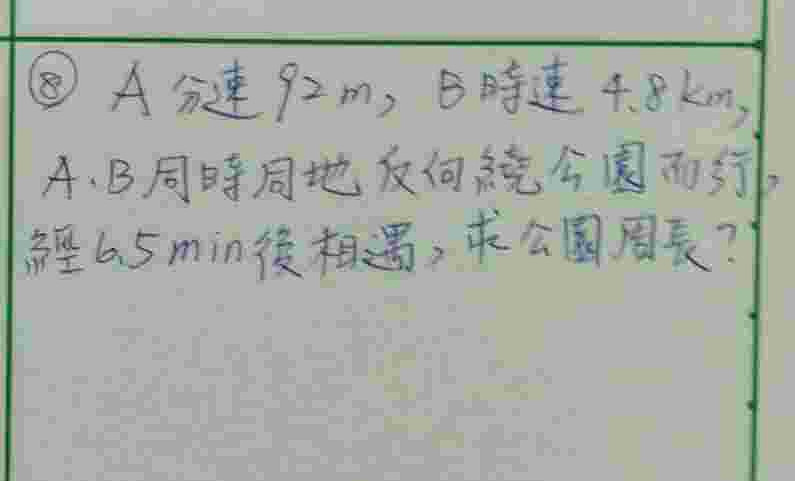 ⑧ A 分速 92m, B 時速 4.8km,
A、B同時同地反向繞公園而行,
經6.5min後相遇,求公園周長?